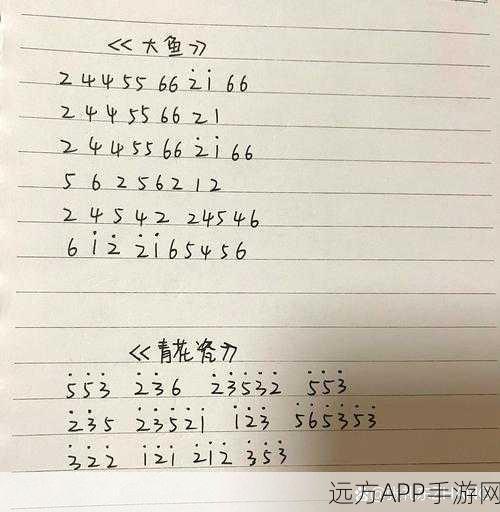 《大鱼》
2 4 4 5 5 6 6 2̇ 1̇ 6 6
2 4 4 5 5 6 6 2 1
2 4 4 5 5 6 6 2̇ 1̇ 6 6
5 6 2 5 6 2 1 2
2 4 5 4 2 2 4 5 4 6
6 1̇ 2̇ 2̇ 1̇ 6 5 4 5 6
《青花瓷》
5̇ 5̇ 3̇ 2̇ 3̇ 6 2̇ 3̇ 5̇ 3̇ 2̇ 5̇ 5̇ 3̇
2̇ 3̇ 5 2̇ 3̇ 5̇ 2̇ 1̇ 1̇ 2̇ 3̇ 5̇ 6̇ 5̇ 3̇ 5̇ 3̇
3̇ 2̇ 2̇ 1̇ 2̇ 1̇ 2̇ 1̇ 2̇ 3̇ 5̇ 3̇
远方APP手游网